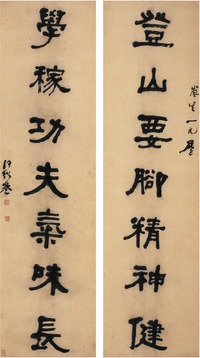 登山要腳精神健
學稼功夫氣味長